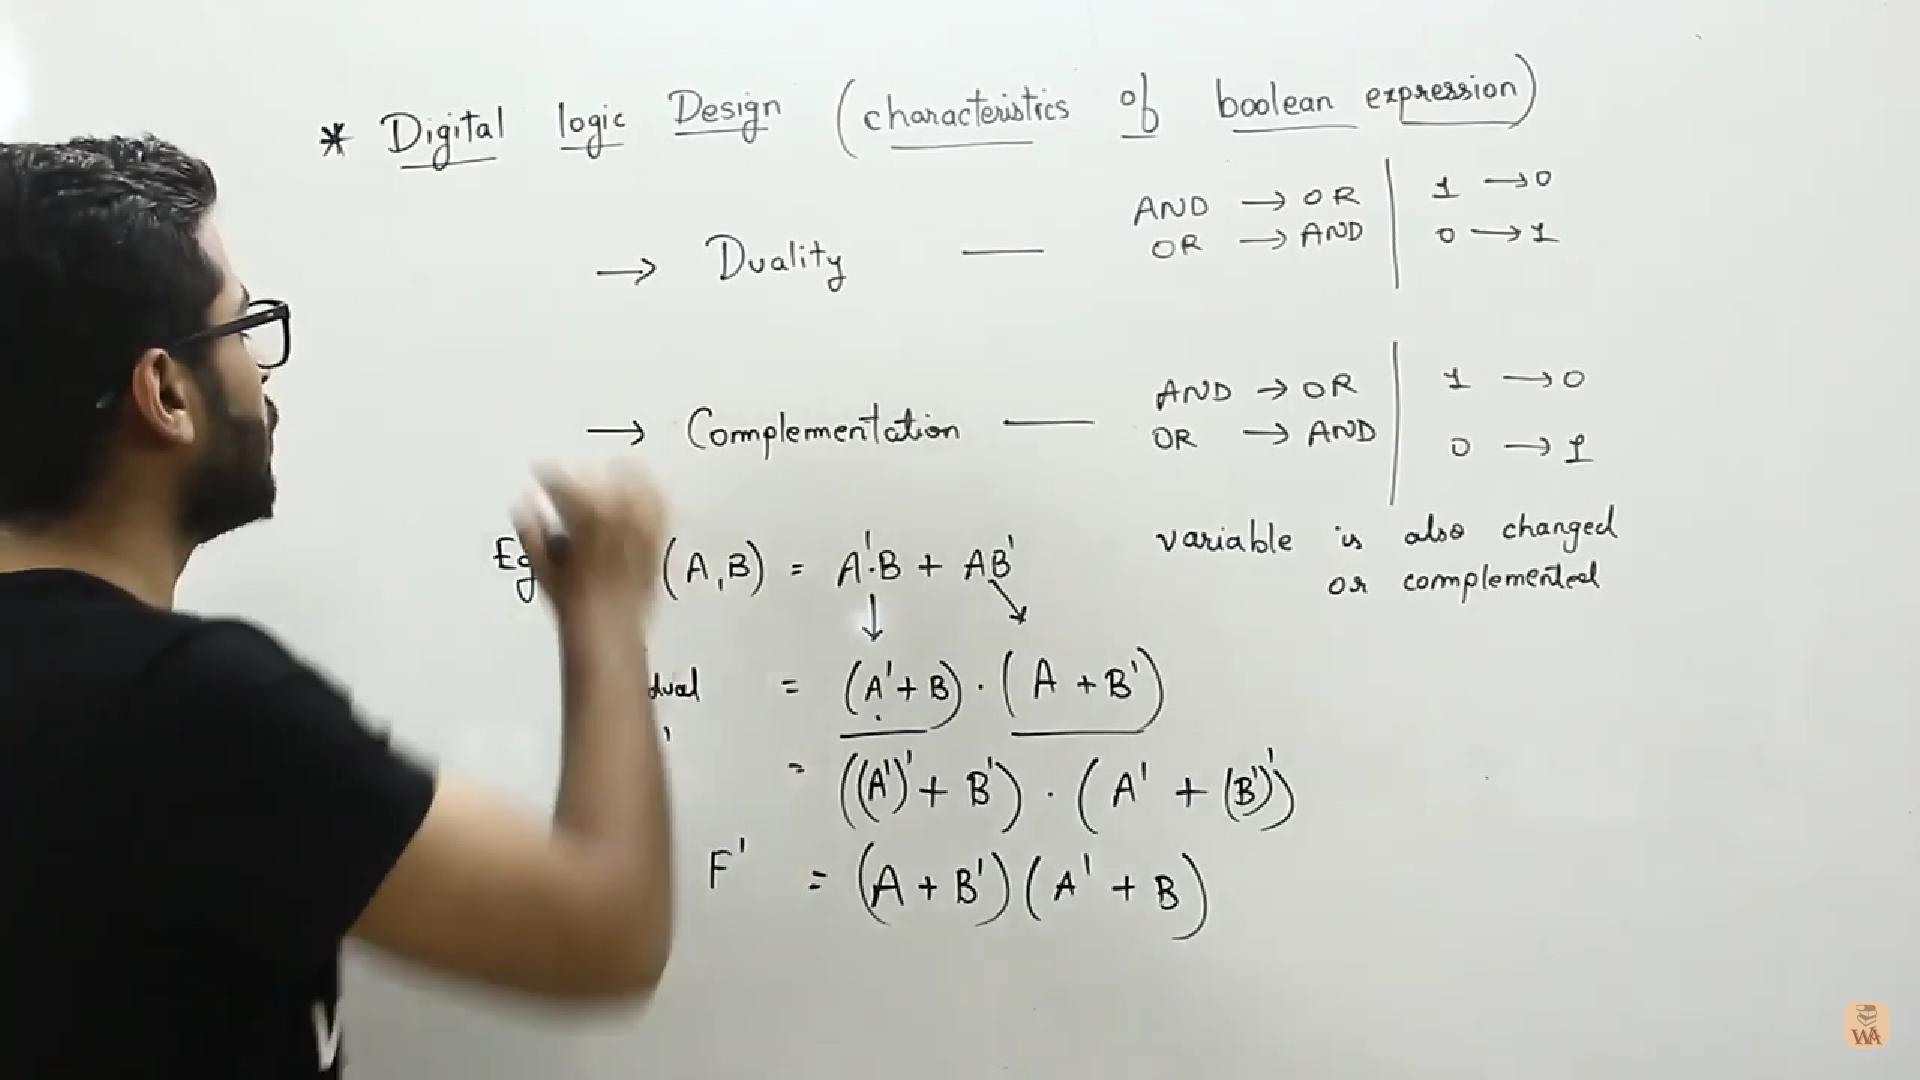 * Digital logic Design (characteristics of boolean expression)
→ Duality — AND → OR | 1 → 0
OR → AND | 0 → 1
→ Complementation — AND → OR | 1 → 0
OR → AND | 0 → 1
variable is also changed
or complemented
Eg (A,B) = A'·B + AB'
dual = (A'+B)·(A+B')
= ((A')'+B')·(A'+(B')')
F' = (A+B')(A'+B)
WA